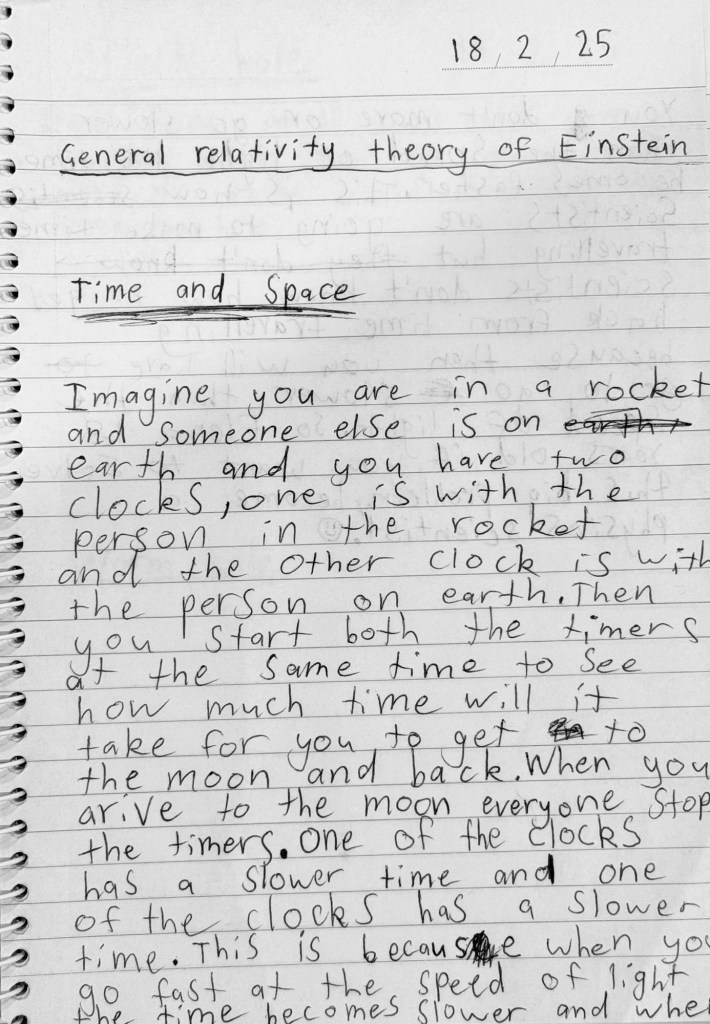 18, 2, 25
General relativity theory of Einstein
Time and Space
Imagine you are in a rocket
and someone else is on earth,
earth and you have two
clocks, one is with the
person in the rocket
and the other clock is with
the person on earth. Then
you start both the timers
at the same time to see
how much time will it
take for you to get to
the moon and back. When you
arive to the moon everyone stop
the timers. One of the clocks
has a slower time and one
of the clocks has a slower
time. This is because when you
go fast at the speed of light
the time becomes slower and when